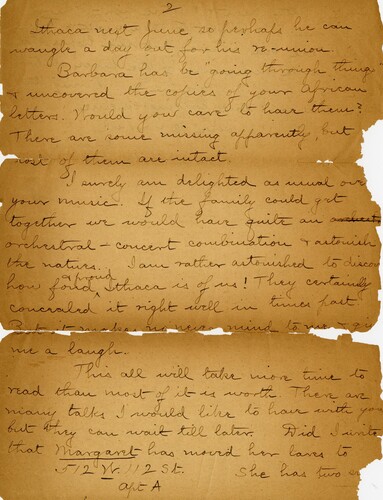 2
Ithaca next June so perhaps he can
wangle a day out for his re-union.
Barbara has be "going through things"
& uncovered the copies of your African
letters. Would you care to have them?
There are some missing apparently, but
most of them are intact.
I surely am delighted as usual over
your music. If the family could get
together we would have quite an
orchestral - concert combination & astonish
the natives. I am rather astonished to
how fond & proud Ithaca is of us! They certainly
concealed it right well in times past.
But it makes no never mind to me
me a laugh.
This all will take more time to
read than most of it is worth. There are
many talks I would like to have with you
but they can wait till later. Did I write
that Margaret has moved her lares to
512 W. 112 St. She has two
Apt A